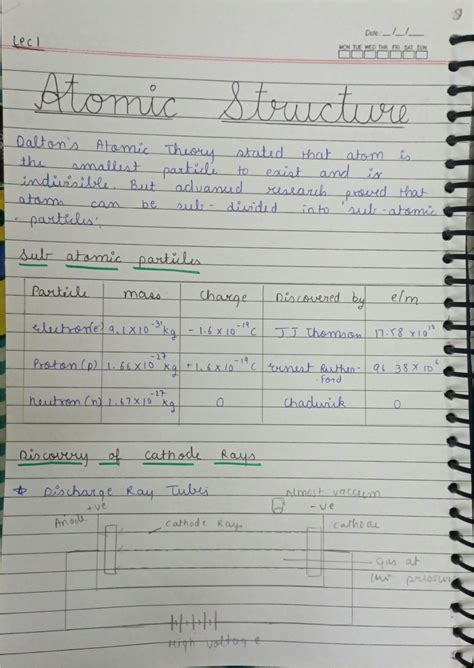 8
Date: __/__/__
MON TUE WED THR FRI SAT SUN
Lec 1
Atomic Structure
Dalton's Atomic Theory stated that atom is
the smallest particle to exist and is
indivisible. But advanced research proved that
atom can be sub-divided into 'sub-atomic
particles'.
Sub atomic particles
Particle mass charge Discovered by e/m
electron(e) 9.1×10⁻³¹ kg -1.6×10⁻¹⁹C JJ Thomson 17.58×10¹⁰
Proton(p) 1.66×10⁻²⁷ kg +1.6×10⁻¹⁹C Ernest Ruther-
ford 96.38×10⁶
neutron(n) 1.67×10⁻²⁷ kg 0 Chadwick 0
Discovery of Cathode Rays
Discharge Ray Tubes
Almost vaccum
Anode +ve
- ve
cathode Rays
cathode
Gas at
low pressure
High voltage